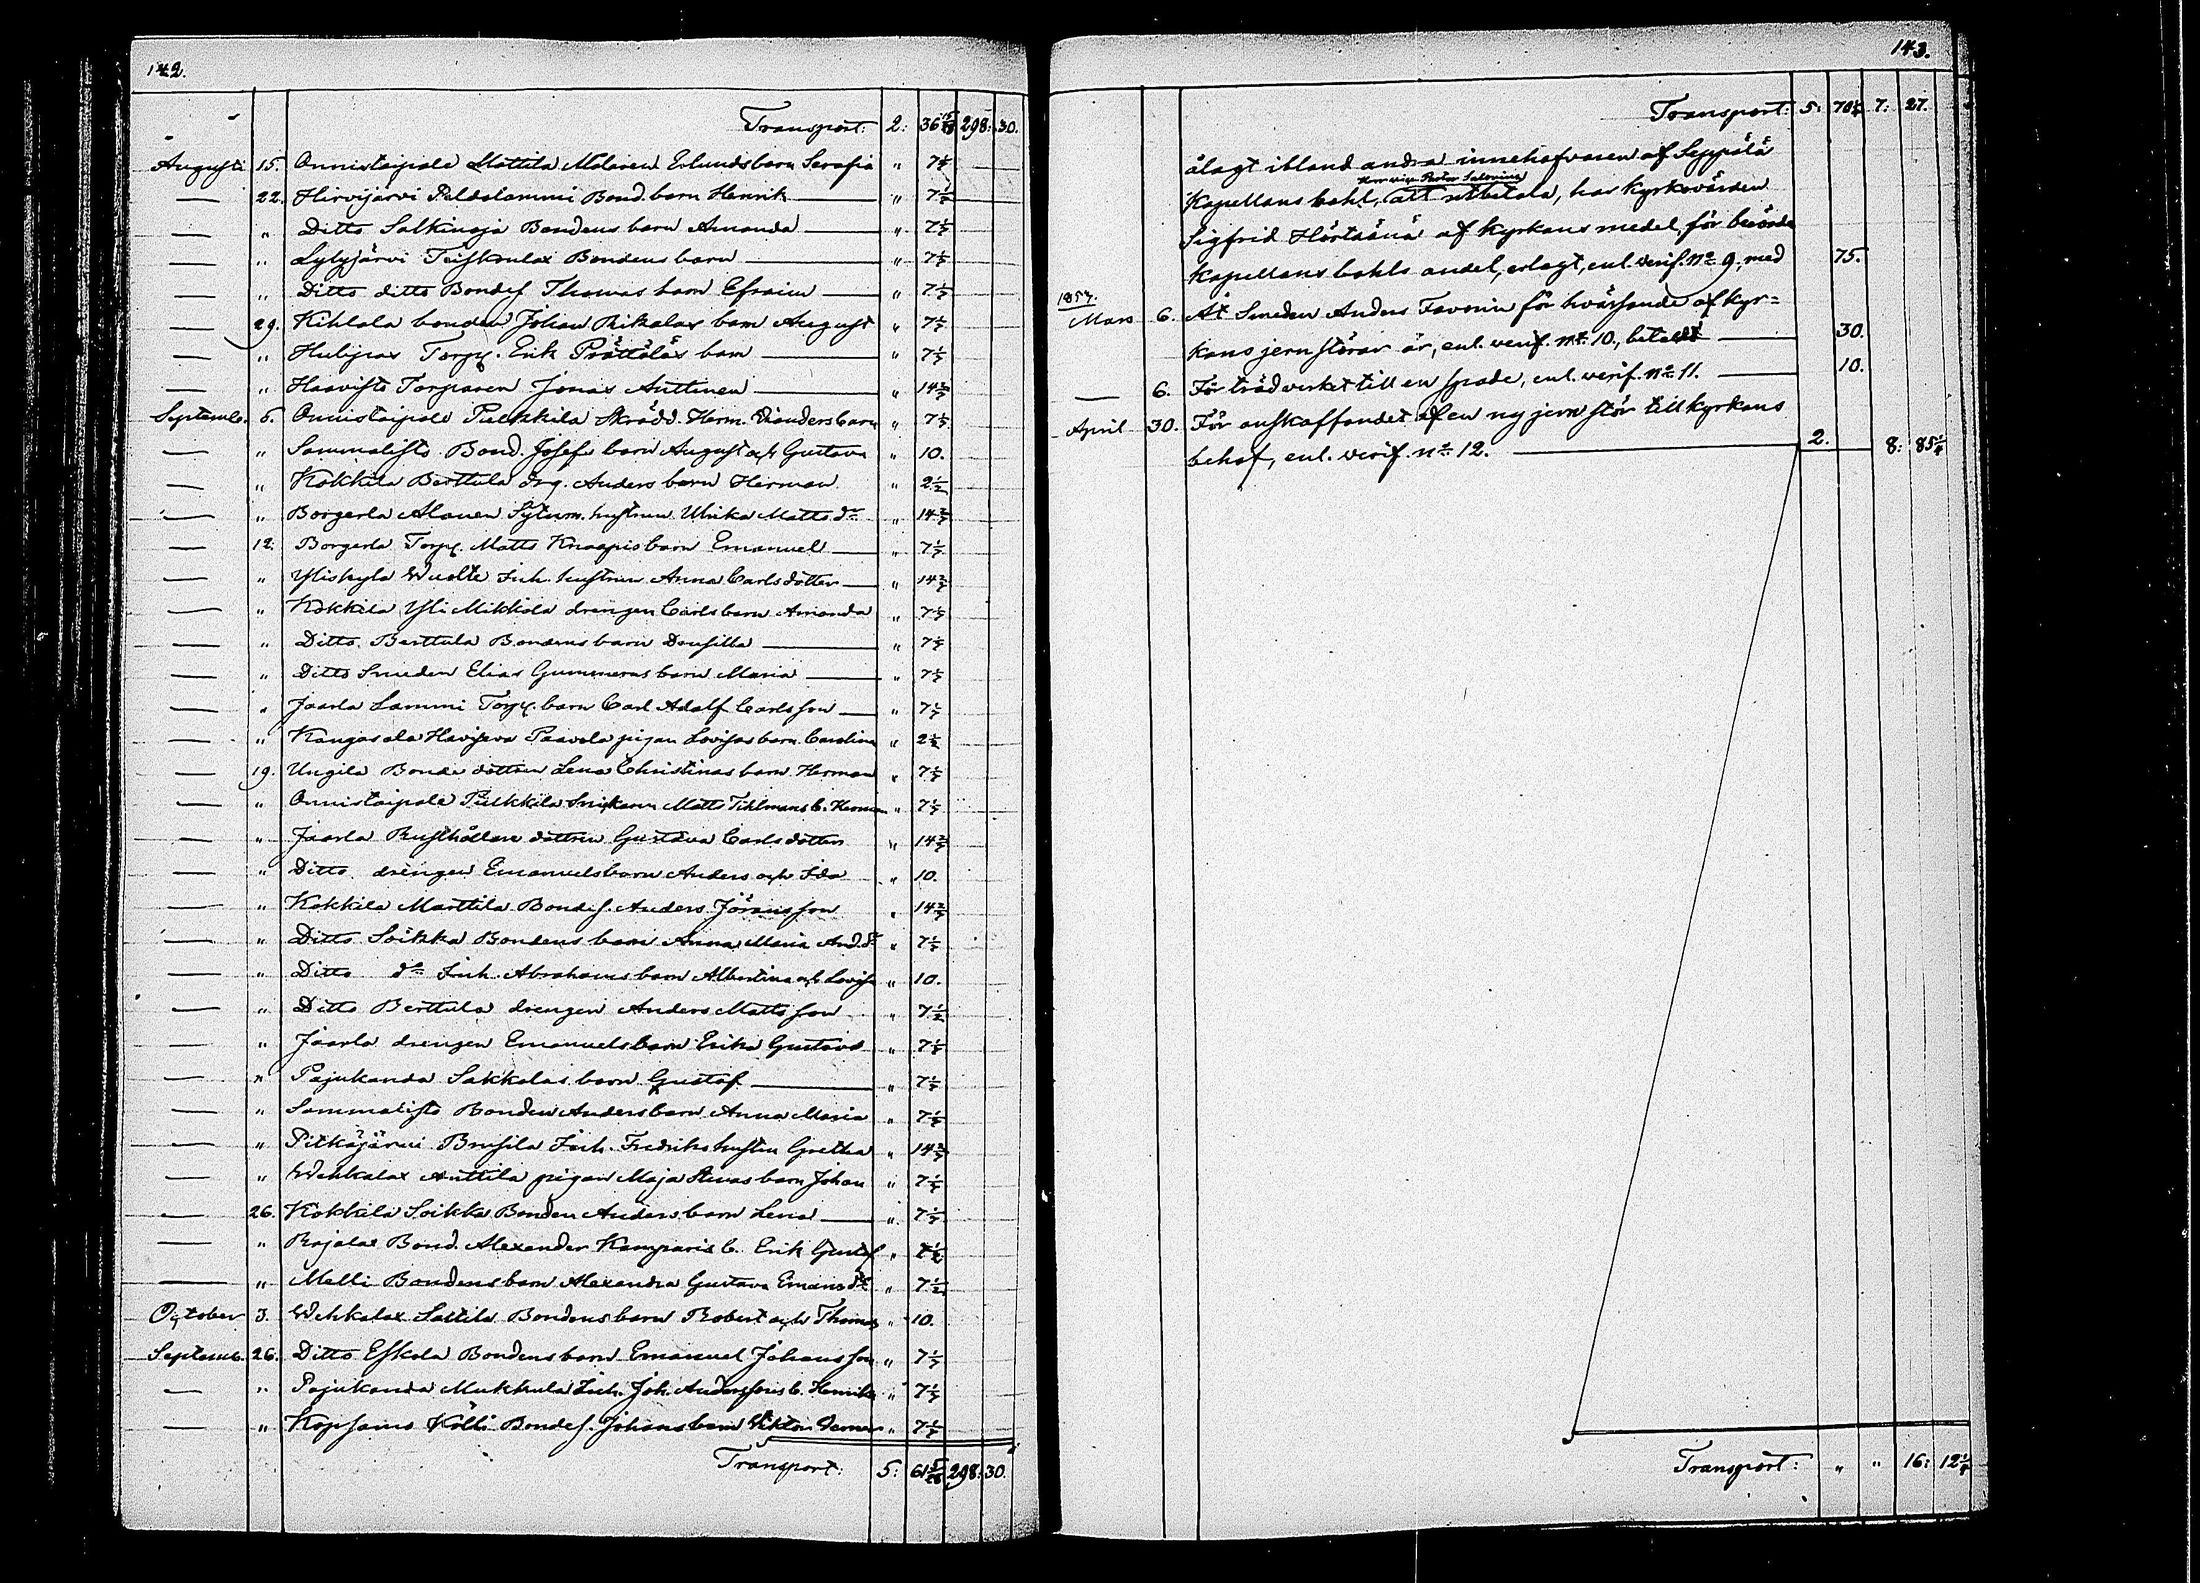 142.
Transport: 2: 36 15/28 298: 30.
Augusti 15. Onnistaipale Mattila Målaren Erlunds barn Serafia " 7 1/7
— 22. Hirvijärvi Peldolammi Bond. barn Henrik — " 7 1/2
— " Ditto Salkinoja Bondens barn Amanda — " 7 1/7
— " Lylyjärvi Bondens barn — " 7 1/7
— " Ditto ditto Bondes. Thomas barn Efraim — " 7 1/7
— 29. Kihlala bonden Johan Rikalas barn August " 7 1/7
— " Torp. Erik Prättäläs barn — " 7 1/7
— " Haavisto Torparen Jonas Anttinen — " 14 2/7
Septemb. 5. Onnistaipale Pulkkila Skrädd. Herm. barn " 7 1/7
— " Sammalisto Bond. Josefs barn August och Gustava " 10.
— " Kokkila Berttula drg. Anders barn Herman " 2 1/2
— " Borgerla Alanen hustrun Ulrika Matts dr " 14 2/7
— 12. Borgerla Torp. Matts Knaapis barn Emanuel — " 7 1/7
— " Yliskylä Wuolte Inh. hustrun Anna Carlsdotter — " 14 2/7
— " Kokkila Yli Mikkola drengen Carls barn Amanda " 7 1/7
— " Ditto Berttula Bondens barn Drusilla — " 7 1/7
— " Ditto Smeden Elias Gummerus barn Maria — " 7 1/7
— " Jaarla Lammi Torp. barn Carl Adolf Carlsson — " 7 1/7
— " Kangasala Haviseva Paavola pigan Lovisas barn Carolina " 2 1/2
— 19. Uugila Bonde dottren Lena Christinas barn Herman " 7 1/7
— " Onnistaipale Pulkkila Snickaren Matts Tihlmans b. Herman " 7 1/7
— " Jaarla Rusthållare dottren Gustava Carlsdotter " 14 2/7
— " Ditto drengen Emanuels barn Anders och Ida " 10.
— " Kokkila Marttila Bondes. Anders Jöransson " 14 2/7
— " Ditto Soikka Bondens barn Anna Maria And. dr " 7 1/7
— " Ditto do Inh. Abrahams barn Albertina och Lovisa " 10.
— " Ditto Berttula drengen Anders Mattsson " 7 1/2
— " Jaarla drengen Emanuels barn Erika Gustava " 7 1/7
— " Pajukanda Sakkolas barn Gustaf — " 7 1/7
— " Sammalisto Bonden Anders barn Anna Maria " 7 1/7
— " Pitkäjärvi Brusila Inh. Fredriks hustru Gretha " 14 2/7
— " Wehkalax Anttila pigan Maja Stinas barn Johan " 7 1/7
— 26. Kokkila Soikka Bonden Anders barn Lena — " 7 1/7
— " Rajalax Bond. Alexander Kamparis b. Erik Gustaf "
— " Melli Bondens barn Alexandra Gustava Emans dr " 7 1/2
October 3. Wehkalax Sattila Bondens barn Robert och Thomas " 10.
Septemb. 26. Ditto Eskola Bondens barn Emanuel Johansson " 7 1/7
— " Pajukanda Mukkula Inh. Joh. Anderssons b. Henrika " 7 1/7
— " Kopsamo Kölli Bondes. Johans barn Viktor Verner " 7 1/7
Transport: 5: 61 5/28 298: 30.
143.
Transport: 5: 70 1/4 7: 27.
ålagt ibland andra innehafvaren af Seppälä
Herr vice Pastor Salovius
Kapellans bohl, att utbetala, har kyrkovärden
Sigfrid Hörtsänä af kyrkans medel, för berörde
Kapellans bohls andel, erlagt, enl. verif. No 9, med 75.
1857.
Mars 6. Åt Smeden Anders Favorin för hvässande af kyr=
kans jern störar är, enl. verif. No 10, betaldt — 30.
— 6. För trädverket till en spade, enl. verif. No 11. — 10.
April 30. För anskaffandet af en ny jern stör till kyrkans
behof, enl. verif. No 12. — 2. 8: 85 1/4
Transport: " " 16: 12 1/4